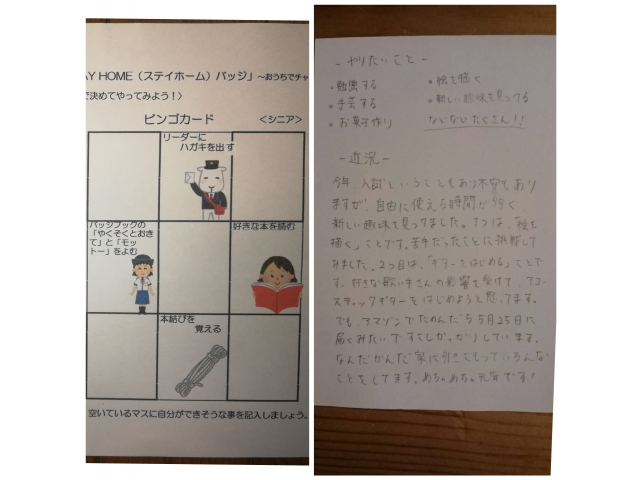 AY HOME（ステイホーム）バッジ」～おうちでチャ
で決めてやってみよう！〉
ビンゴカード
＜シニア＞
リーダーに
ハガキを出す
バッジブックの
「やくそくとおき
て」と「モッ
トー」をよむ
好きな本を読む
本結びを
覚える
空いているマスに自分ができそうな事を記入しましょう。
- やりたいこと -
・勉強する
・手芸する
・お菓子作り
・絵を描く
・新しい趣味を見つける
などなどたくさん!!
- 近況 -
今年、入試ということもあり不安でもあり
ますが、自由に使える時間が多く
新しい趣味を見つけました。1つは、「絵を
描く」ことです。苦手だったことに挑戦して
みました。2つ目は、「ギターをはじめる」ことで
す。好きな歌い手さんの影響を受けて、アコー
スティックギターをはじめようと思ってます。
でも、アマゾンでたのんだら5月25日に
届くみたいで すこしがっかりしています。
なんだかんだ家に引きこもっていろんな
ことをしてます。めちゃめちゃ元気です!